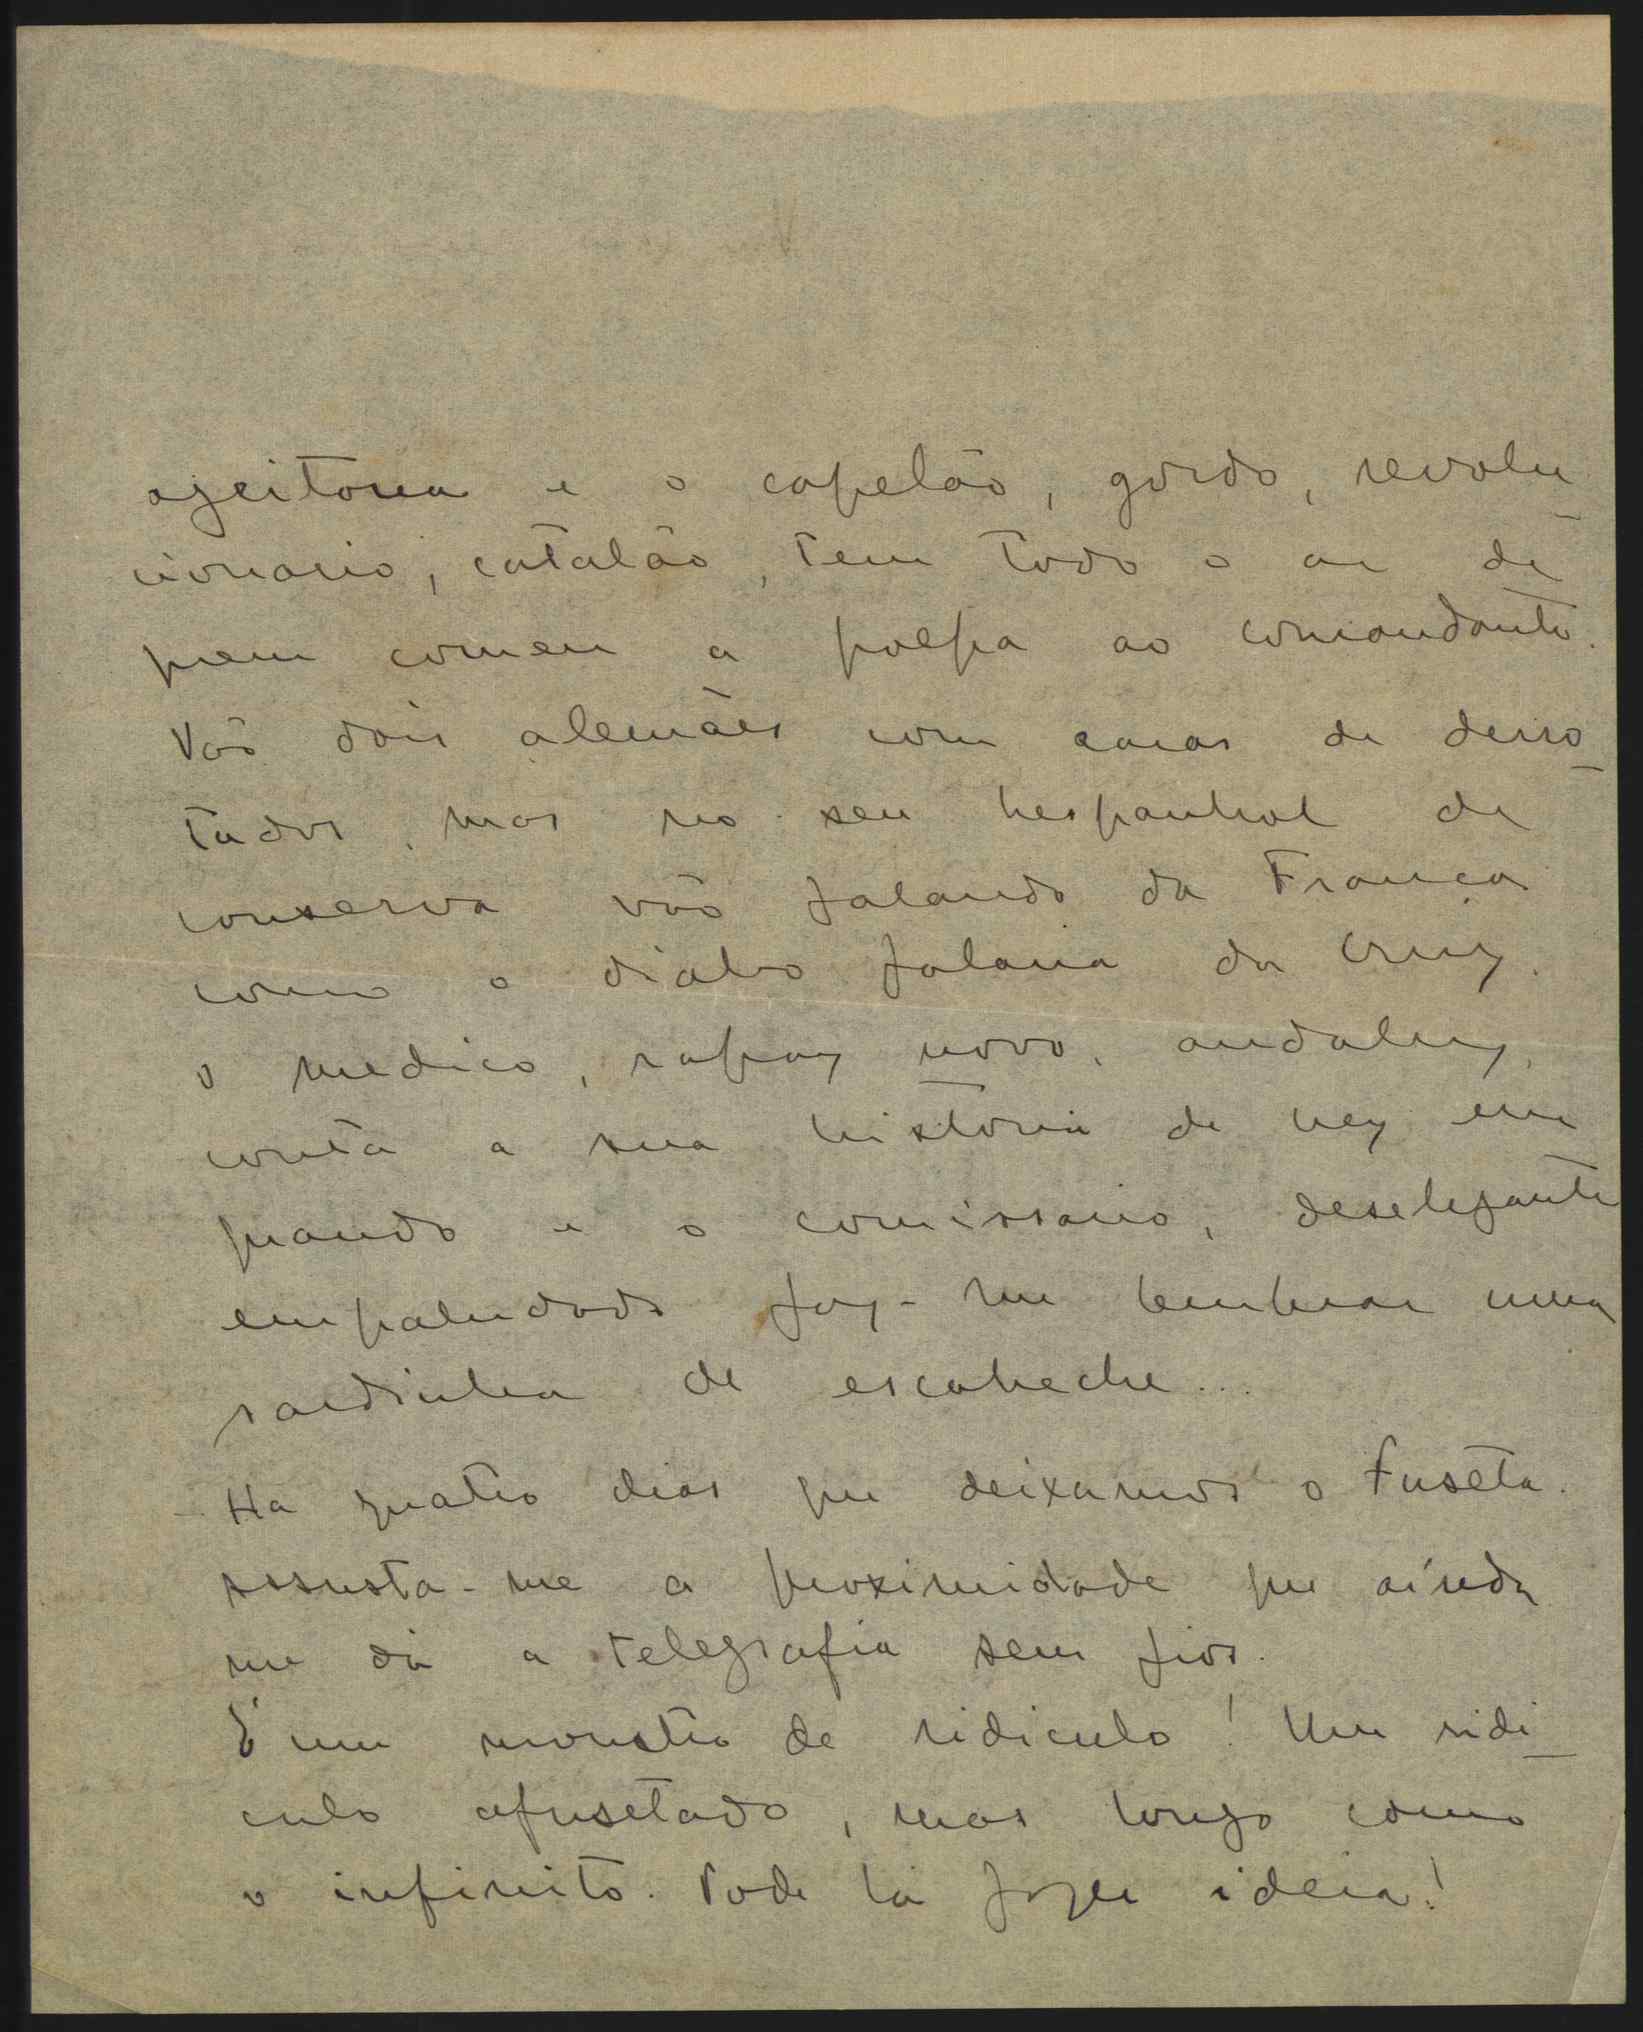 azeitona e o capelão, gordo, revolu
cionario, catalão, tem todo o ar de
quem comeu a polpa ao comandante.
Vão dois alemães com caras de derro-
tados, mas no seu hespanhol de
conserva vão falando da França
como o diabo falaria da Cruz.
O medico, rapaz novo, andaluz,
conta a sua historia de vez em
quando e o comissario, deselegante
empaludado faz-me lembrar uma
sardinha de escabeche...
Ha quatro dias que deixamos o Fuseta.
Assusta-me a proximidade que ainda
me dá a telegrafia sem fios.
É um monstro de ridiculo! Um ridi-
culo afusetado, mas longo como
o infinito. Pode lá fazer ideia!